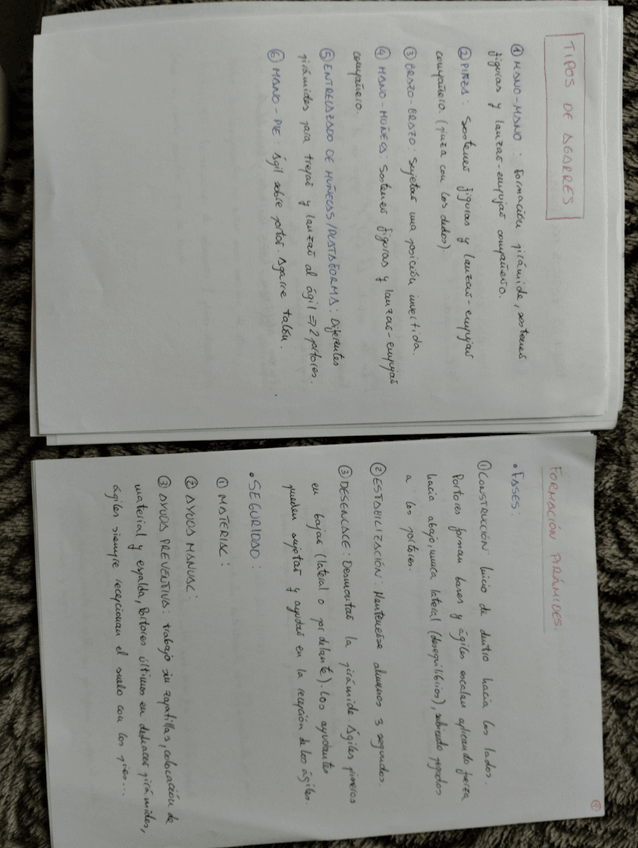 TIPOS DE AGARRES
① MANO-MANO: Formación pirámide, sostener
figuras y lanzar-empujar compañero.
② PINZA: Sostener figuras y lanzar-empujar
compañero (pinza con los dedos).
③ BRAZO-BRAZO: Sujetar una posición invertida.
④ MANO-MUÑECA: Sostener figuras y lanzar-empujar
compañero.
⑤ ENTRELAZADO DE MUÑECAS/PLATAFORMA: Diferentes
pirámides para trepar y lanzar al ágil ⇒ 2 portores.
⑥ MANO-PIE Ágil sobre portor agarre talón.
FORMACIÓN PIRÁMIDES:
• FASES:
① CONSTRUCCIÓN Inicio de dentro hacia los lados
Portores forman bases y ágiles escalan aplicando fuerza
hacia abajo, nunca lateral (desequilibrios), pegados
a los portores.
② ESTABILIZACIÓN: Mantenerse almenos 3 segundos.
③ DESENCAJE: Desmontar la pirámide Ágiles primeros
en bajar (lateral o por delante). Los ayudantes
pueden sujetar y ayudar en la recepción de los ágiles.
• SEGURIDAD:
① MATERIAL:
② AYUDA MANUAL:
③ AYUDA PREVENTIVA: trabajo sin zapatillas, colocación de
material y espalda, Portores últimos en deshacer pirámides,
ágiles siempre recepcionan el suelo con los pies...